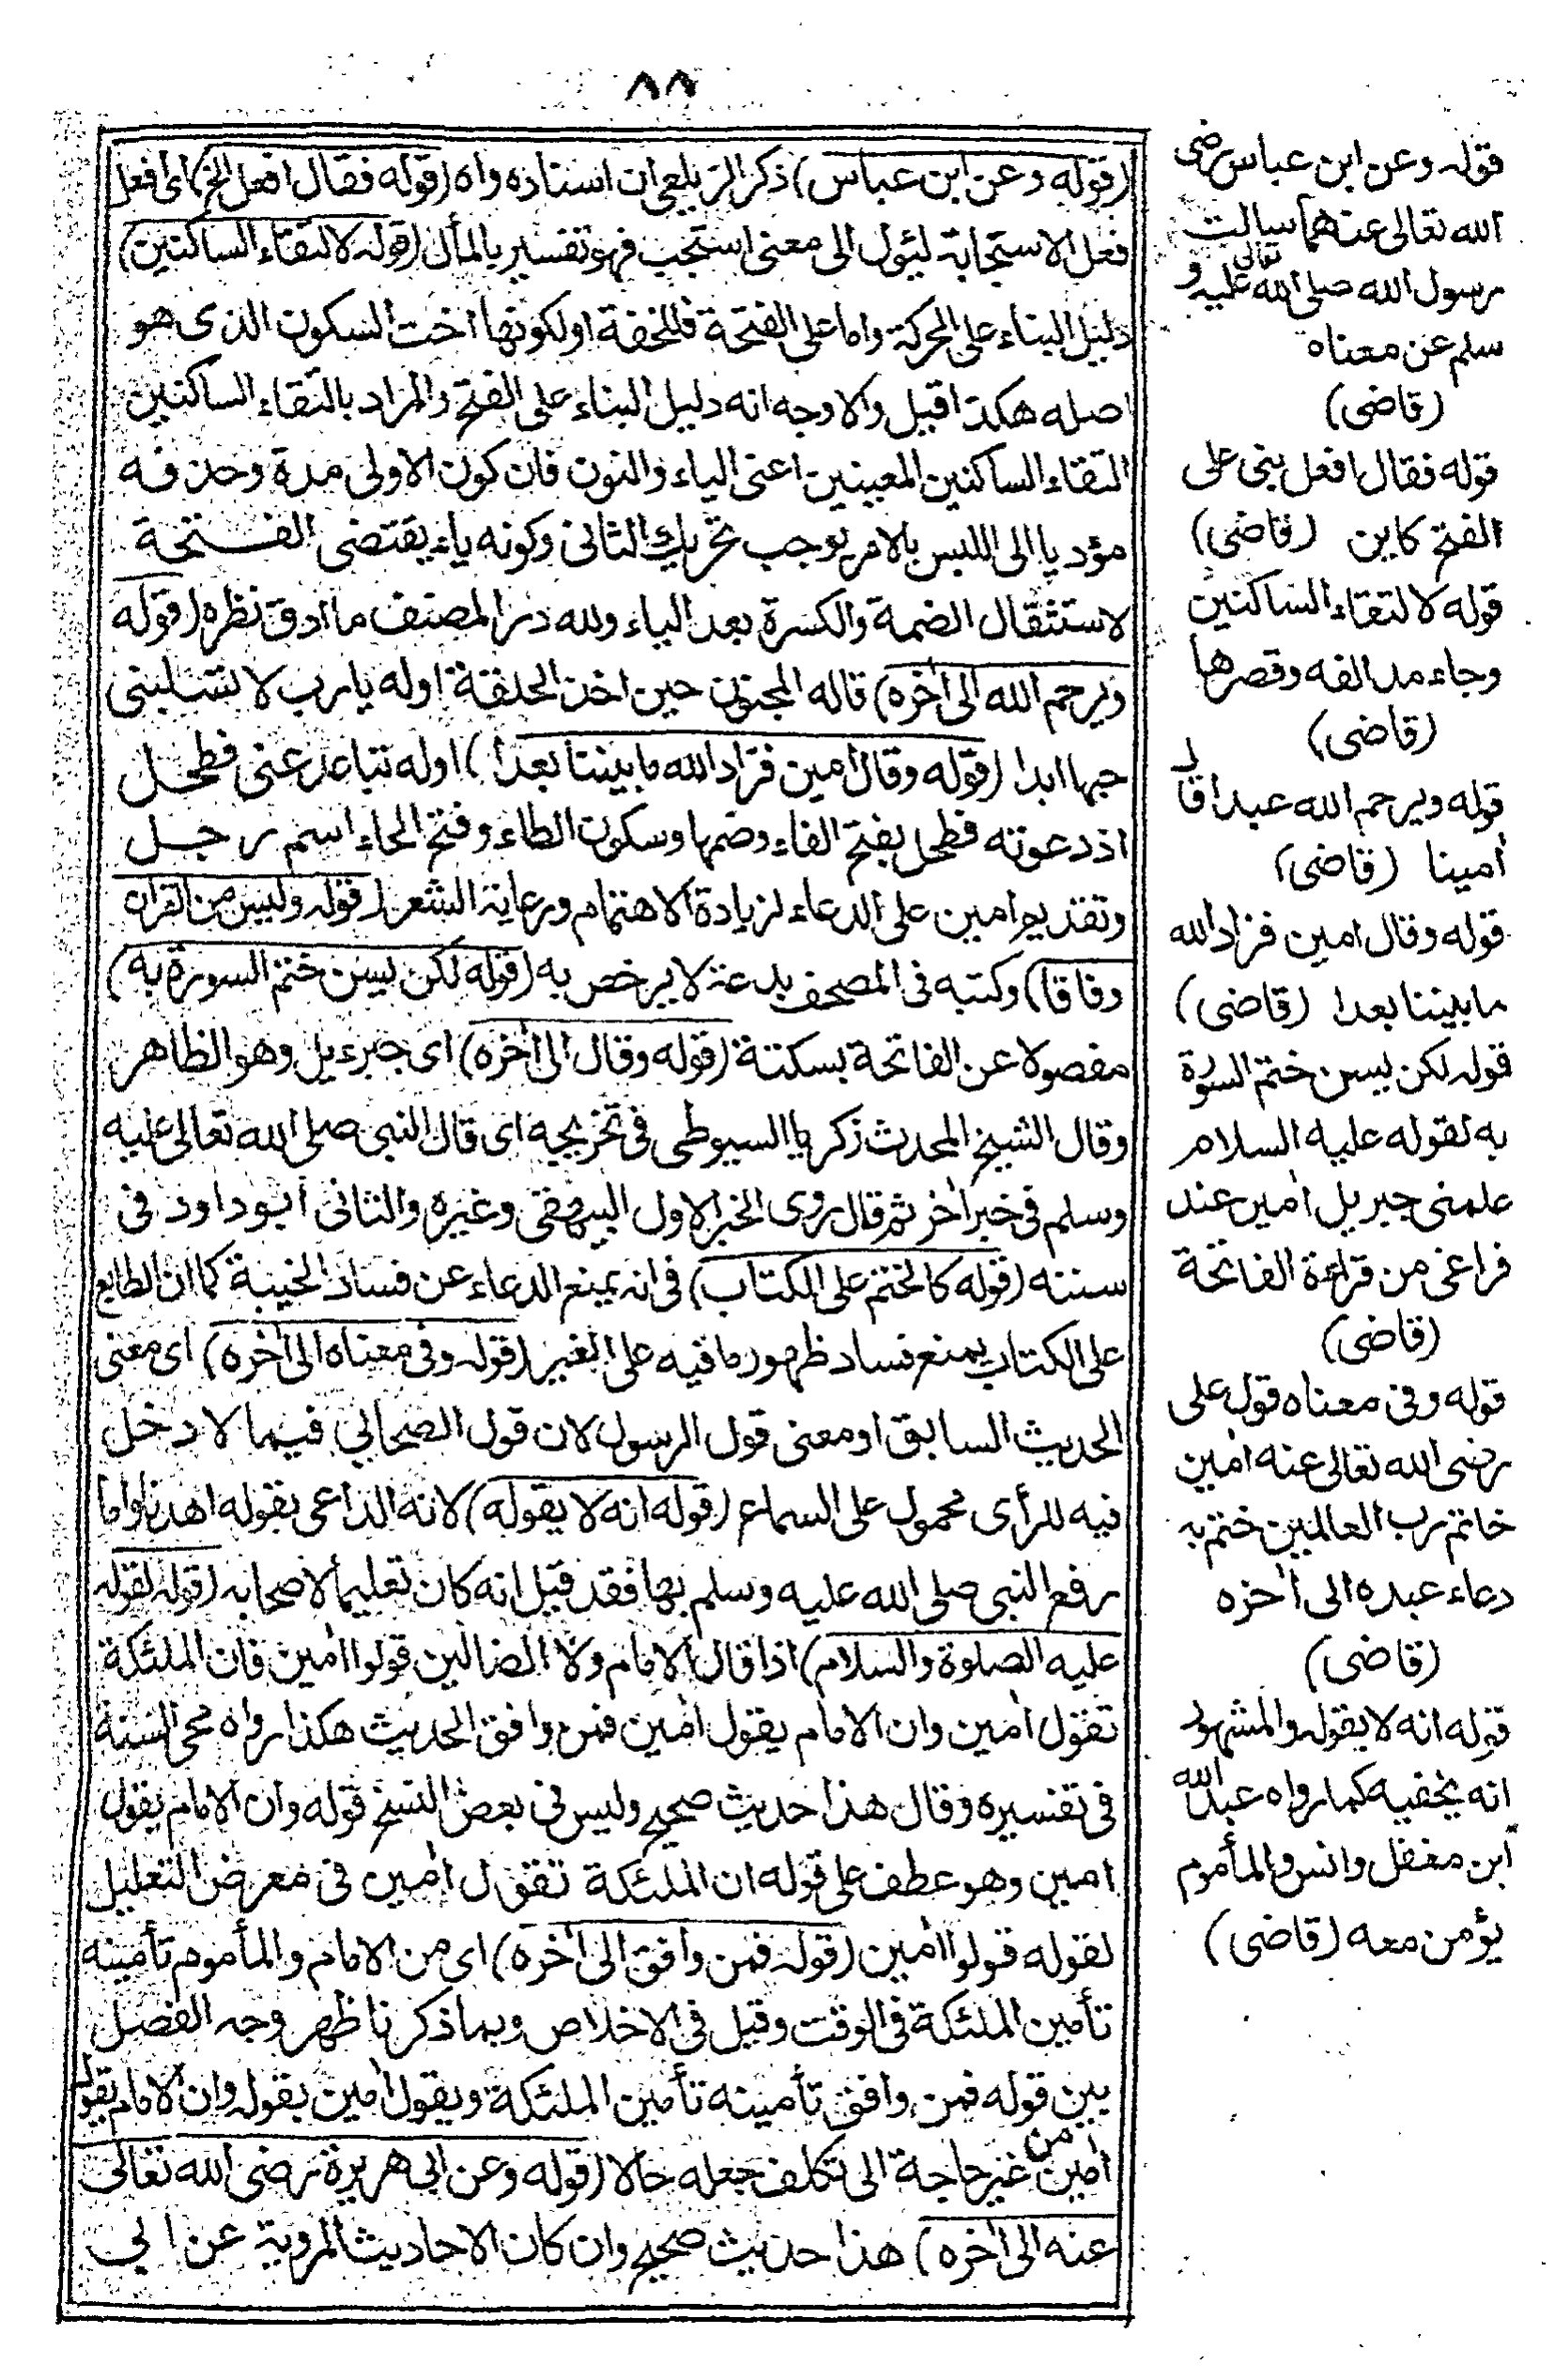 ٨٨
(قوله وعن ابن عباس) ذكر الزيلعي ان اسناده واه (قوله فقال افعل الخ) اى افعل
فعل الاستجابة ليئول الى معنى استجب فهو تفسير بالمأل (قوله لالتقاء الساكنين)
دليل البناء على الحركة واما على الفتحة فللخفة او لكونها اخت السكون الذى هو
اصله هكذا قيل والاوجه انه دليل البناء على الفتح والمراد بالتقاء الساكنين
التقاء الساكنين المعينين اعنى الياء والنون فان كون الاولى مدة وحذفه
مؤديا الى اللبس بالامر يوجب تحريك الثانى وكونه ياء يقتضى الفتحة
لاستثقال الضمة والكسرة بعد الياء ولله در المصنف ما ادق نظره (قوله
ويرحم الله الى أخره) قاله المجنون حين اخذ الحلقة اوله يا رب لا تسلبنى
حبها ابدا (قوله وقال امين فزاد الله ما بيننا بعدا) اوله تباعد عنى فطحل
اذ دعوته فطحل بفتح الفاء وضمها وسكون الطاء وفتح الحاء اسم رجل
وتقديم امين على الدعاء لزيادة الاهتمام ورعاية الشعر (قوله وليس من القران
وفاقا) وكتبه فى المصحف بدعة لا يرخص به (قوله لكن يسن ختم السورة به)
مفصولا عن الفاتحة بسكتة (قوله وقال الى أخره) اى جبرءيل وهو الظاهر
وقال الشيخ المحدث زكريا السيوطى فى تخريجه اى قال النبى صلى الله تعالى عليه
وسلم فى خبر أخر ثم قال روى الخبر الاول البيهقى وغيره والثانى أبو داود فى
سننه (قوله كالختم على الكتاب) فى انه يمنع الدعاء عن فساد الخيبة كما ان الطابع
على الكتاب يمنع فساد ظهور ما فيه على الغير (قوله وفى معناه الى أخره) اى معنى
الحديث السابق او معنى قول الرسول لان قول الصحابي فيما لا دخل
فيه للرأى محمول على السماع (قوله انه لا يقوله) لانه الداعى بقوله اهدنا واما
رفع النبى صلى الله عليه وسلم بها فقد قيل انه كان تعليما لاصحابه (قوله لقوله
عليه الصلوة والسلام) اذا قال الامام ولا الضالين قولوا أمين فان الملئكة
تقول أمين وان الامام يقول أمين فمن وافق الحديث هكذا رواه محى السنة
فى تفسيره وقال هذا حديث صحيح وليس فى بعض النسخ قوله وان الامام يقول
امين وهو عطف على قوله ان الملئكة تقول أمين فى معرض التعليل
لقوله قولوا أمين (قوله فمن وافق الى أخره) اى من الامام والمأموم تأمينه
تأمين الملئكة فى الوقت وقيل فى الاخلاص وبما ذكرنا ظهر وجه الفصل
بين قوله فمن وافق تأمينه تأمين الملئكة ويقول أمين بقوله وان الامام يقول
أمين من غير حاجة الى تكلف جعله حالا (قوله وعن ابى هريرة رضى الله تعالى
عنه الى أخره) هذا حديث صحيح وان كان الاحاديث المروية عن ابي
قوله وعن ابن عباس رضى
الله تعالى عنهما سالت
رسول الله صلى الله تعالى عليه و
سلم عن معناه
(قاضى)
قوله فقال افعل بنى على
الفتح كاين (قاضى)
قوله لالتقاء الساكنين
وجاء مد الفه وقصرها
(قاضى)
قوله ويرحم الله عبدا قال
أمينا (قاضى)
قوله وقال امين فزاد الله
ما بيننا بعدا (قاضى)
قوله لكن يسن ختم السورة
به لقوله عليه السلام
علمنى جبريل أمين عند
فراغى من قراءة الفاتحة
(قاضى)
قوله وفى معناه قول على
رضى الله تعالى عنه أمين
خاتم رب العالمين ختم به
دعاء عبده الى أخره
(قاضى)
قوله انه لا يقوله والمشهور
انه يخفيه كما رواه عبد الله
ابن مغفل وانس والمأموم
يؤمن معه (قاضى)